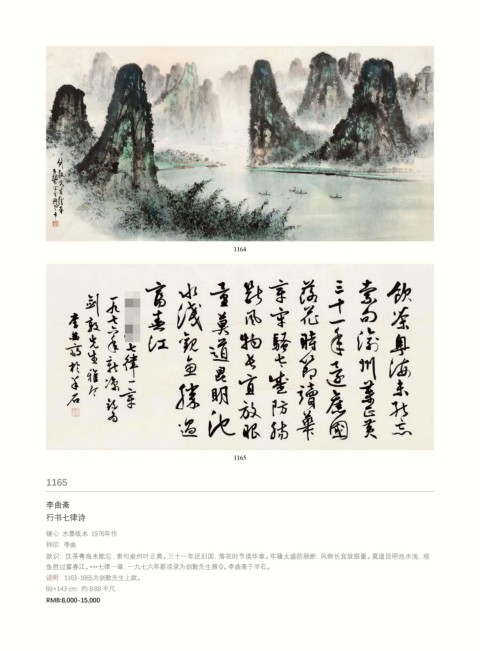 1164
飲茶粤海未能忘
索句渝州葉正黄
三十一年還舊國
落花時節讀華
章牢騷太盛防腸
斷風物長宜放眼
量莫道昆明池
水淺觀魚勝過
富春江
七律一章
一九七六年新凉录为
劍敦先生雅令
李曲齋於羊石
1165
1165
李曲斋
行书七律诗
镜心 水墨纸本 1976年作
钤印：李曲
款识：饮茶粤海未能忘，索句渝州叶正黄。三十一年还旧国，落花时节读华章。牢骚太盛防肠断，风物长宜放眼量。莫道昆明池水浅，观
鱼胜过富春江。•••七律一章，一九七六年新凉录为剑敦先生雅令。李曲斋于羊石。
说明：1163-1665为剑敦先生上款。
69×143 cm 约 8.88 平尺
RMB:8,000-15,000